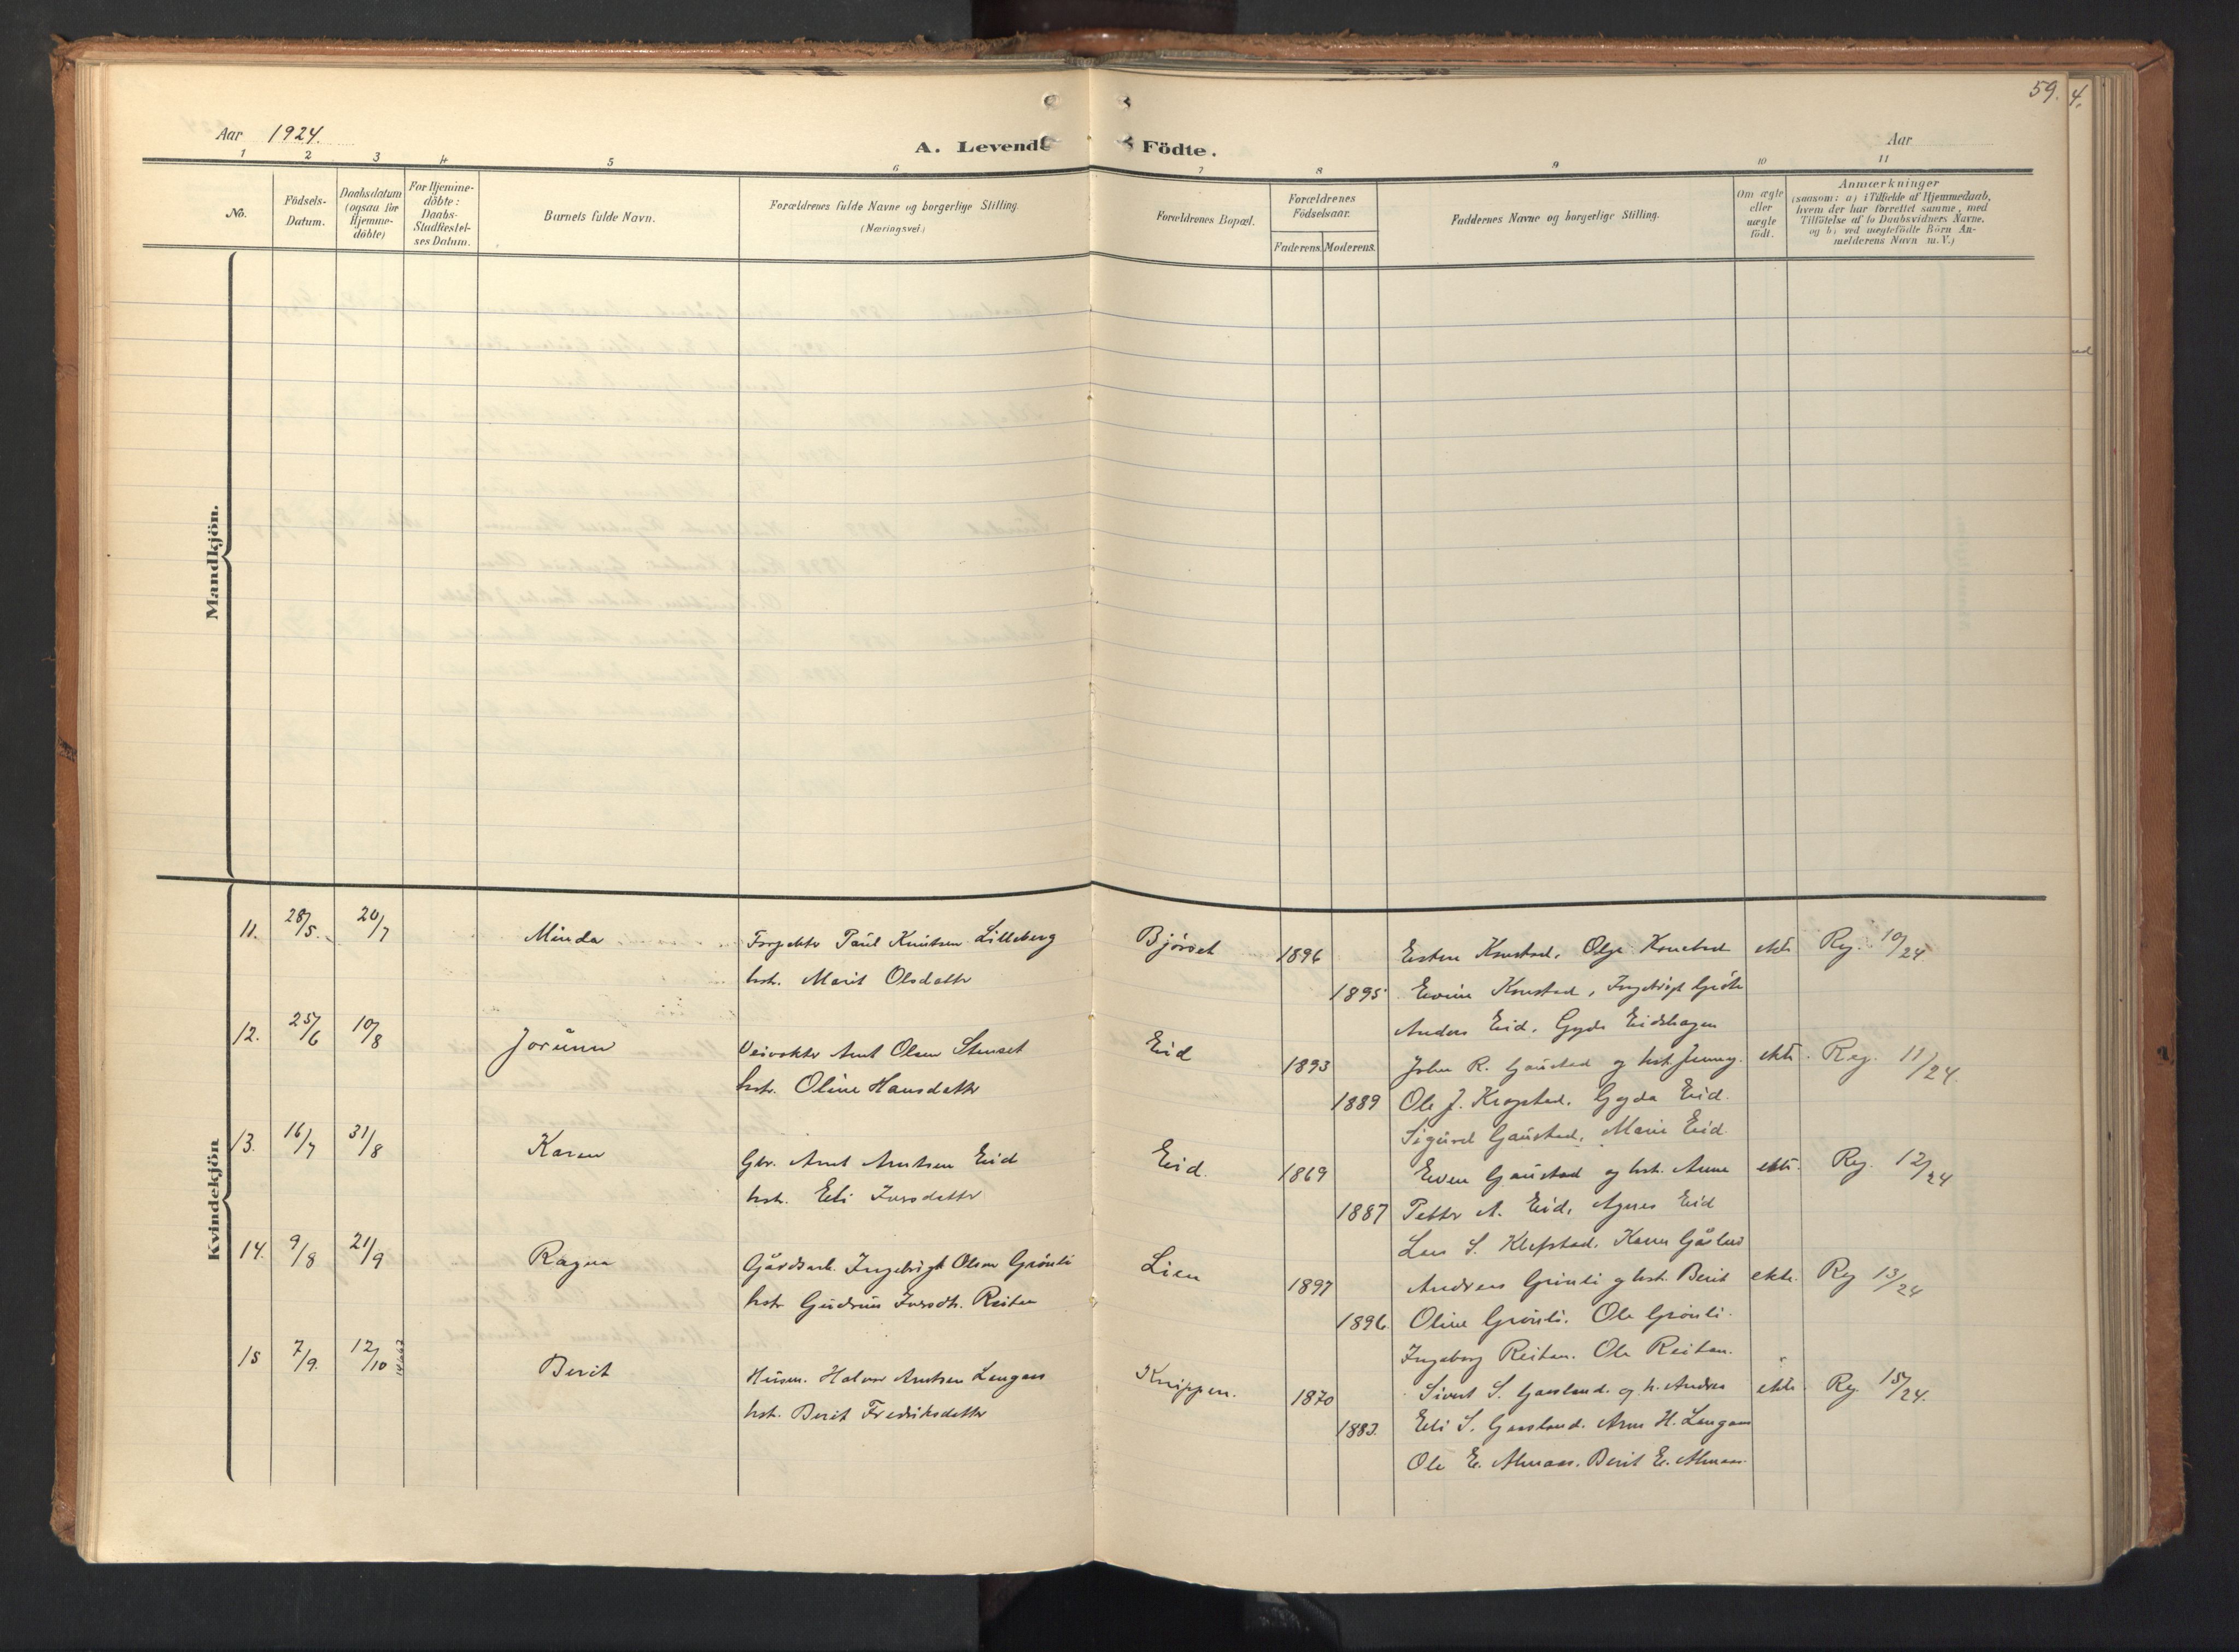 59. 4.
Aar 1924.
A. Levende Födte.
Aar
1 2 3 4 5 6 7 8 9 10 11
No.
Födsels-Datum.
Daabsdatum (ogsaa for Hjemme-döbte)
For Hjemme-döbte: Daabs-Stadfæstel-ses Datum.
Barnets fulde Navn.
Forældrenes fulde Navne og borgerlige Stilling. (Næringsvei.)
Forældrenes Bopæl.
Forældrenes Födselsaar.
Faderens. Moderens.
Faddernes Navne og borgerlige Stilling.
Om ægte eller uægte födt.
Anmærkninger
(saasom: a) i Tilfælde af Hjemmedaab,
hvem der har forrettet samme, med
Tilföielse af to Daabsvidners Navne.
og b) ved uægtefödte Börn An-
melderens Navn m. V.)
Mandkjön.
Kvindekjön
11. 28/5. 20/7 Minda Forpakter Paul Knutsen Lilleberg Bjørset 1896 Esten Konstad, Olga Konstad ekte Reg. 10/24
hstr. Marit Olsdatter 1895 Konstad, Ingebrigt
Anders Eid. Gyda Eidshagen
12. 25/6 10/8 Jorunn Veivokter Arnt Olsen Stenset Eid 1893 John R. Gaustad og hst. Jenny. ekte. Reg. 11/24.
hstr. Oline Hansdatter 1889 Ole J. Krogstad. Gyda Eid.
Sigurd Gaustad, Marie Eid.
13. 16/7 31/8 Karen Gbr. Arnt Arntsen Eid Eid. 1869 Even Gaustad og hst. Anne ekte. Reg. 12/24
hstr. Eli Iversdatter 1887 Petter A. Eid, Agnes Eid
Lars S. Klefstad. Karen
14. 9/8 21/9 Ragna Gårdsarb. Ingebrigt Olsen Grønli Lien 1897 Andreas Grønli og hst. Berit ekte. Reg 13/24
hstr. Gudrun Iversdtr. Reitan 1896. Oline Grønli. Ole Grønli.
Ingeborg Reitan. Ole Reitan.
15 7/9. 12/10 Berit Husm. Halvor Arntsen Langaas Knippen. 1870 Sivert S. Gaasland. og h. Andrea ekte. Reg. 15/24.
hst. Berit Fredriksdatter 1883. Eli S. Gaasland. Arne H. Langaas
Ole E. Almaas. Berit E. Almaas.